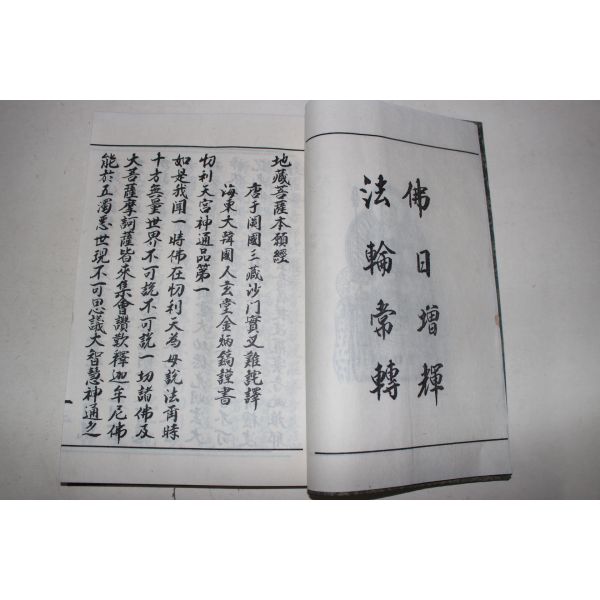 佛日增輝
法輪常轉
地藏菩薩本願經
唐于闐國三藏沙门實叉難陀譯
海東大韓國人玄堂金炳鎬謹書
忉利天宮神通品第一
如是我聞一時佛在忉利天為母說法爾時
十方無量世界不可說不可說一切諸佛及
大菩薩摩訶薩皆來集會讚歎釋迦牟尼佛
能於五濁惡世現不可思議大智慧神通之